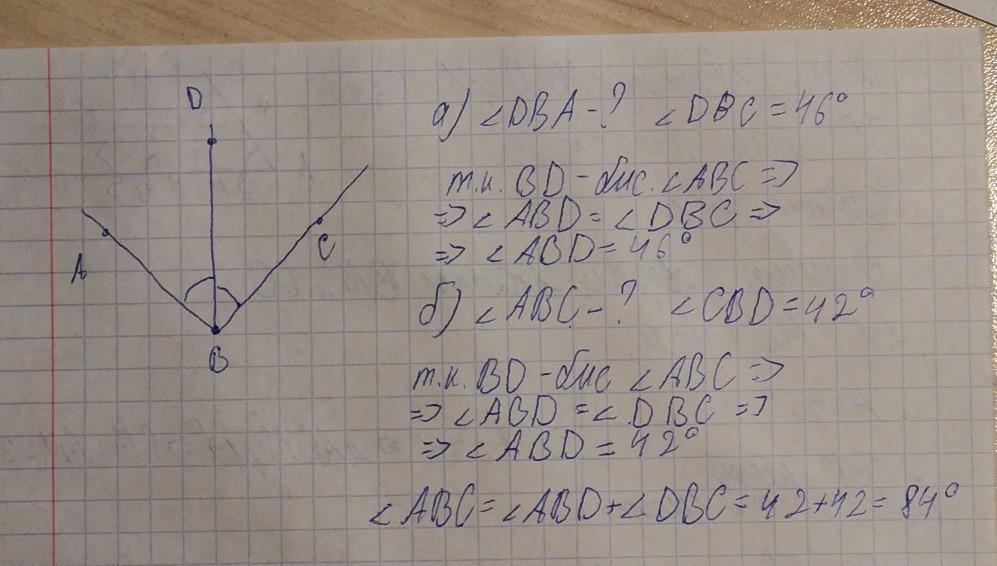 D
A
C
B
а) ∠DBA - ? ∠DBC = 46°
т.к. BD - бис. ∠ABC =>
=> ∠ABD = ∠DBC =>
=> ∠ABD = 46°
б) ∠ABC - ? ∠CBD = 42°
т.к. BD - бис ∠ABC =>
=> ∠ABD = ∠DBC =>
=> ∠ABD = 42°
∠ABC = ∠ABD + ∠DBC = 42+42 = 84°